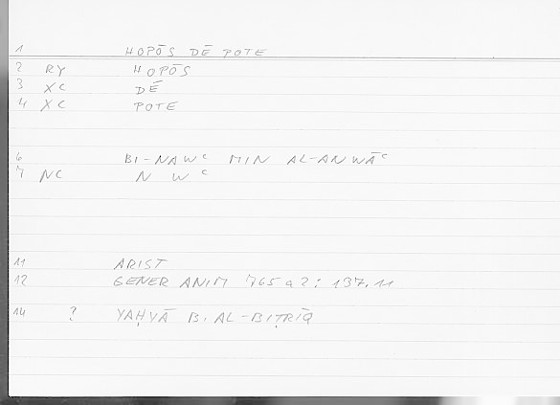 1 HOPŌS DĒ POTE
2 RY HOPŌS
3 XC DĒ
4 XC POTE
6 BI-NAWᶜ MIN AL-ANWĀᶜ
7 NC N W ᶜ
11 ARIST
12 GENER ANIM 765 a 2 ; 137.11
14 ? YAḤYĀ B. AL-BIṬRĪQ